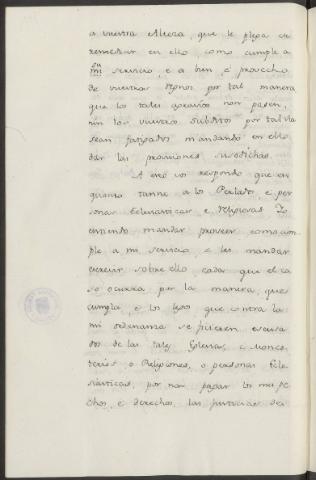 a vuestra Alteza, que le plega de
remediar en ello como cumple a
su
mi servicio, e a bien, e provecho
de vuestros regnos por tal manera
que los tales agravios non pasen,
nin los vuestros subditos por tal via
sean fatigados mandando en ello
dar las provisiones susodichas.
A esto vos respondo que en
quanto tanne a los Perlados, e per
sonas Eclesiasticas, e Religiosas Yo
entiendo mandar proveer como cum
ple a mi servicio, e les mandar
escrevir sobre ello cada que el ca
so ocurra por la manera, que
cumpla, e los legos que contra la
mi ordenanza se ficieren escusa
dos de las tales Eglesias, e Mones
terios, o Religiones, o personas Ecle
siasticas, por non pagar los mis pe
chos, e derechos, las justicias de